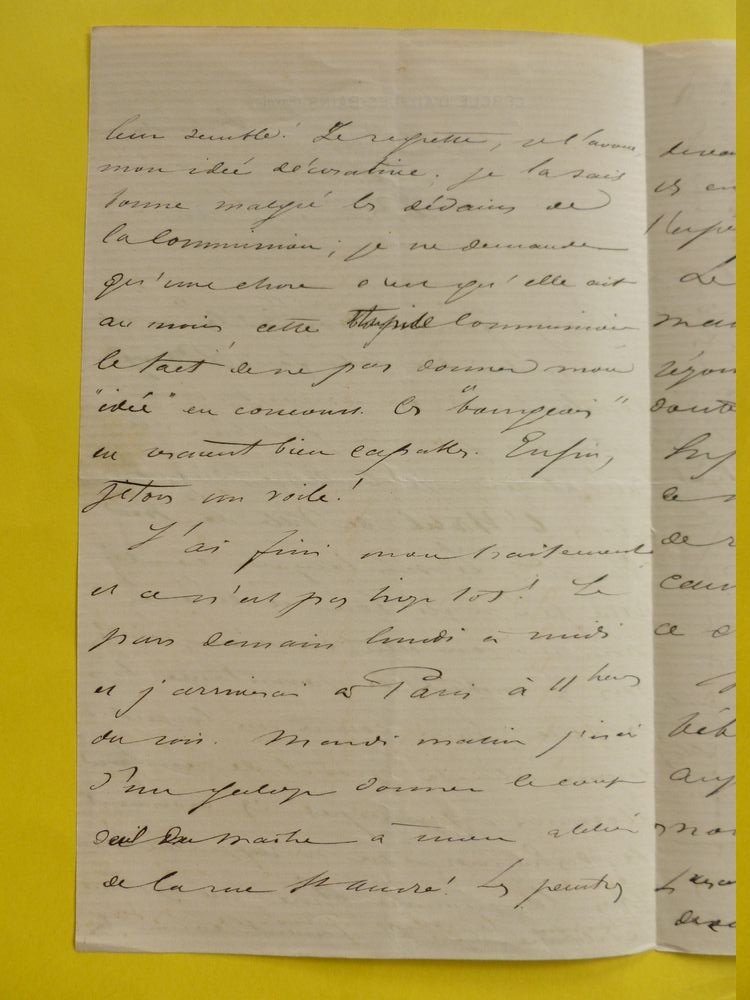 leur semble! Je regrette, je l'avoue,
mon idée décorative; je la sais
bonne malgré les dédains de
la Commission; je ne demande
qu'une chose c'est qu'elle ait
au moins cette stupide Commission
le tact de ne pas donner mon
"idée" en concours. Ces "bourgeois"
en seraient bien capables. Enfin,
jetons un voile!
J'ai fini mon traitement
et ce n'est pas trop tôt! Je
pars demain lundi à midi
et j'arriverai à Paris à 11 heures
du soir. Mardi matin j'irai
d'un galop donner le coup
d'œil du maître à mon atelier
de la rue St André! Les peintres